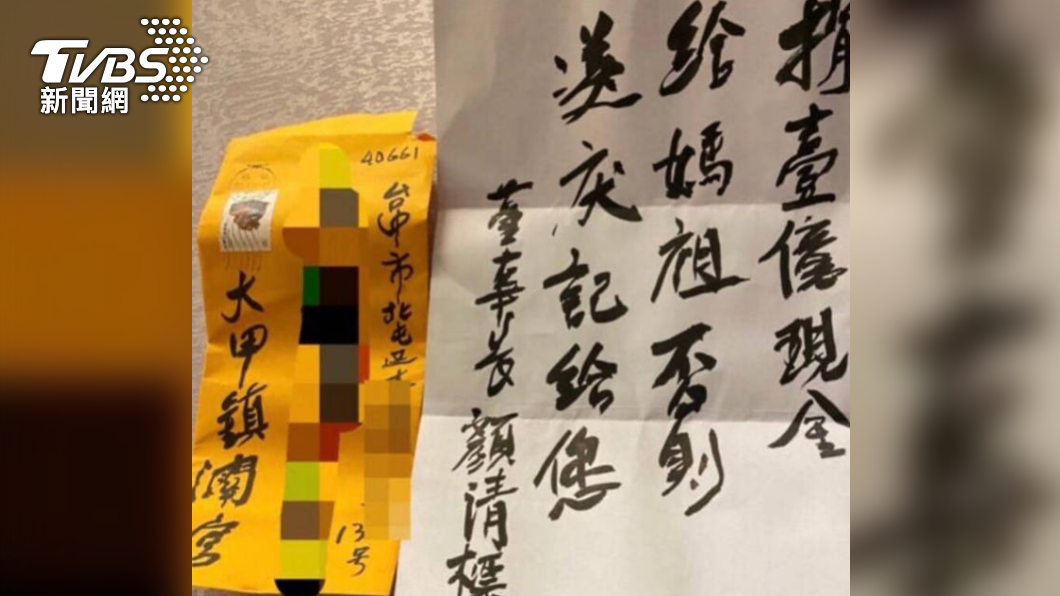 TVBS
新聞網
捐壹億現金
給媽祖否則
災厄記給您
董事長顏清標
40661
台中市北屯區
13号
大甲鎮瀾宮